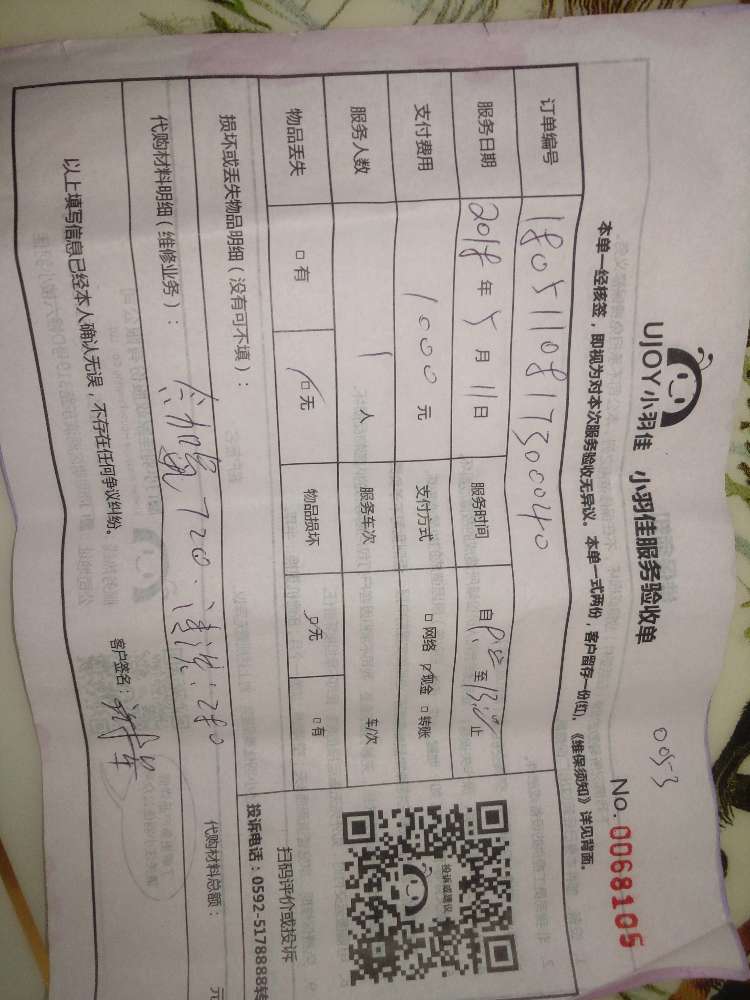 005-3
UJOY小羽佳 小羽佳服务验收单 No. 0068105
本单一经核签，即视为对本次服务验收无异议。本单一式两份，客户留存一份(红)，《维保须知》详见背面。
订单编号 180511081730040
服务日期 2018 年 5 月 11 日 服务时间 自 至 止
支付费用 1000 元 支付方式 □ 网络 ☑ 现金 □ 转账
服务人数 1 人 服务车次 车/次
物品丢失 □ 有 ☑ 无 物品损坏 ☑ 无 □ 有
投诉或建议
扫码评价或投诉
投诉电话：0592-5178888转
损坏或丢失物品明细（没有可不填）：
代购材料明细（维修业务）： 加氟720. 清洗:280 代购材料总额： 元
以上填写信息已经本人确认无误，不存在任何争议纠纷。 客户签名：